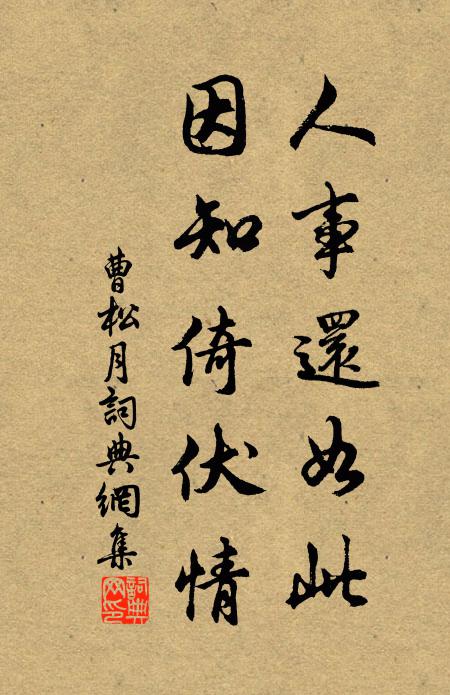 人事還如此
因知倚伏情
曹松月詞典網集
詞典网印